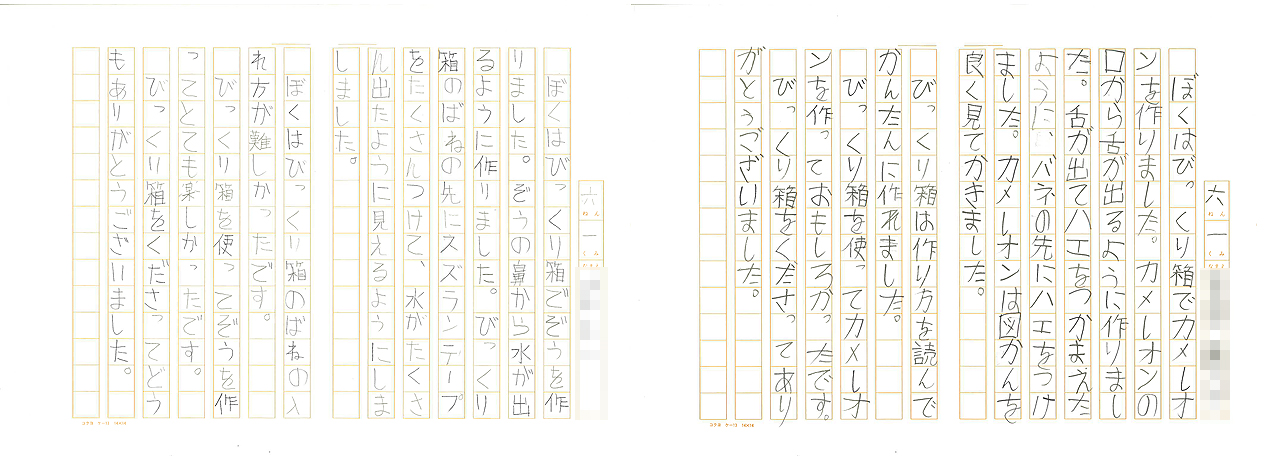 六ねん一くみ
なまえ
ぼくはびっくり箱でカメレオ
ンを作りました。カメレオンの
口から舌が出るように作りまし
た。舌が出てハエをつかまえた
ように、バネの先にハエをつけ
ました。カメレオンは図かんを
良く見てかきました。
びっくり箱は作り方を読んで
かんたんに作れました。
びっくり箱を使ってカメレオ
ンを作っておもしろかったです。
びっくり箱をくださってあり
がとうございました。
コクヨ ケ-13 18×18
六ねん一くみ
ぼくはびっくり箱でぞうを作
りました。ぞうの鼻から水が出
るように作りました。びっくり
箱のばねの先にスズランテープ
をたくさんつけて、水がたくさ
ん出たように見えるようにしま
しました。
ぼくはびっくり箱のばねの入
れ方が難しかったです。
びっくり箱を使ってぞうを作
ってとても楽しかったです。
びっくり箱をくださってどう
もありがとうございました。
コクヨ ケ-13 18×18